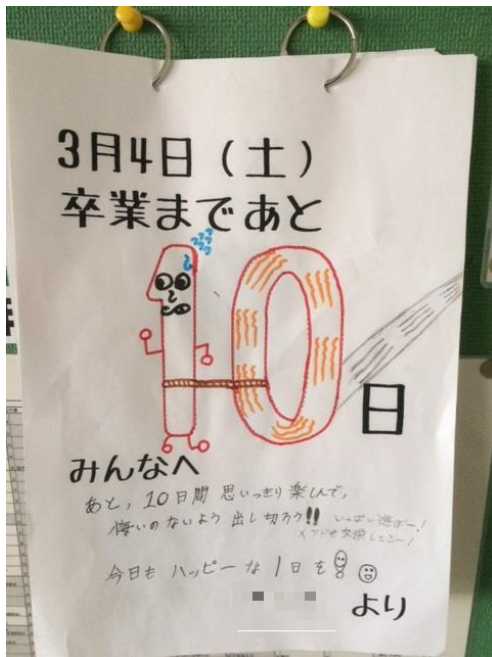 3月4日（土）
卒業まであと
10
日
みんなへ
あと，10日間 思いっきり楽しんで，
悔いのないよう 出し切ろう!! いっぱい遊ぼー！
メアドも交換しとこー！
今日も ハッピーな 1日を!
より